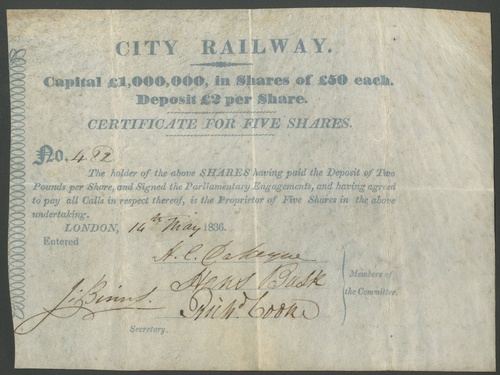 CITY RAILWAY.
Capital £1,000,000, in Shares of £50 each.
Deposit £2 per Share.
CERTIFICATE FOR FIVE SHARES.
No. 482
The holder of the above SHARES having paid the Deposit of Two
Pounds per Share, and Signed the Parliamentary Engagements, and having agreed
to pay all Calls in respect thereof, is the Proprietor of Five Shares in the above
undertaking.
LONDON, 14th May 1836.
Entered
A. C.
Hans Busk
Members of
the Committee.
J. Binns.
Richd. Cooke
Secretary.